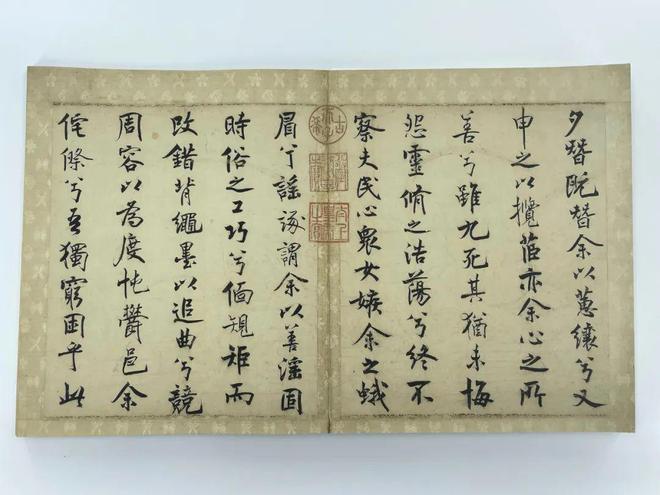 夕替既替余以蕙纕兮又
申之以攬茝亦余心之所
善兮雖九死其猶未悔
怨靈脩之浩蕩兮終不
察夫民心衆女嫉余之蛾
眉兮謠諑謂余以善淫固
時俗之工巧兮偭規矩而
改錯背繩墨以追曲兮競
周容以為度忳鬱邑余
侘傺兮吾獨窮困乎此